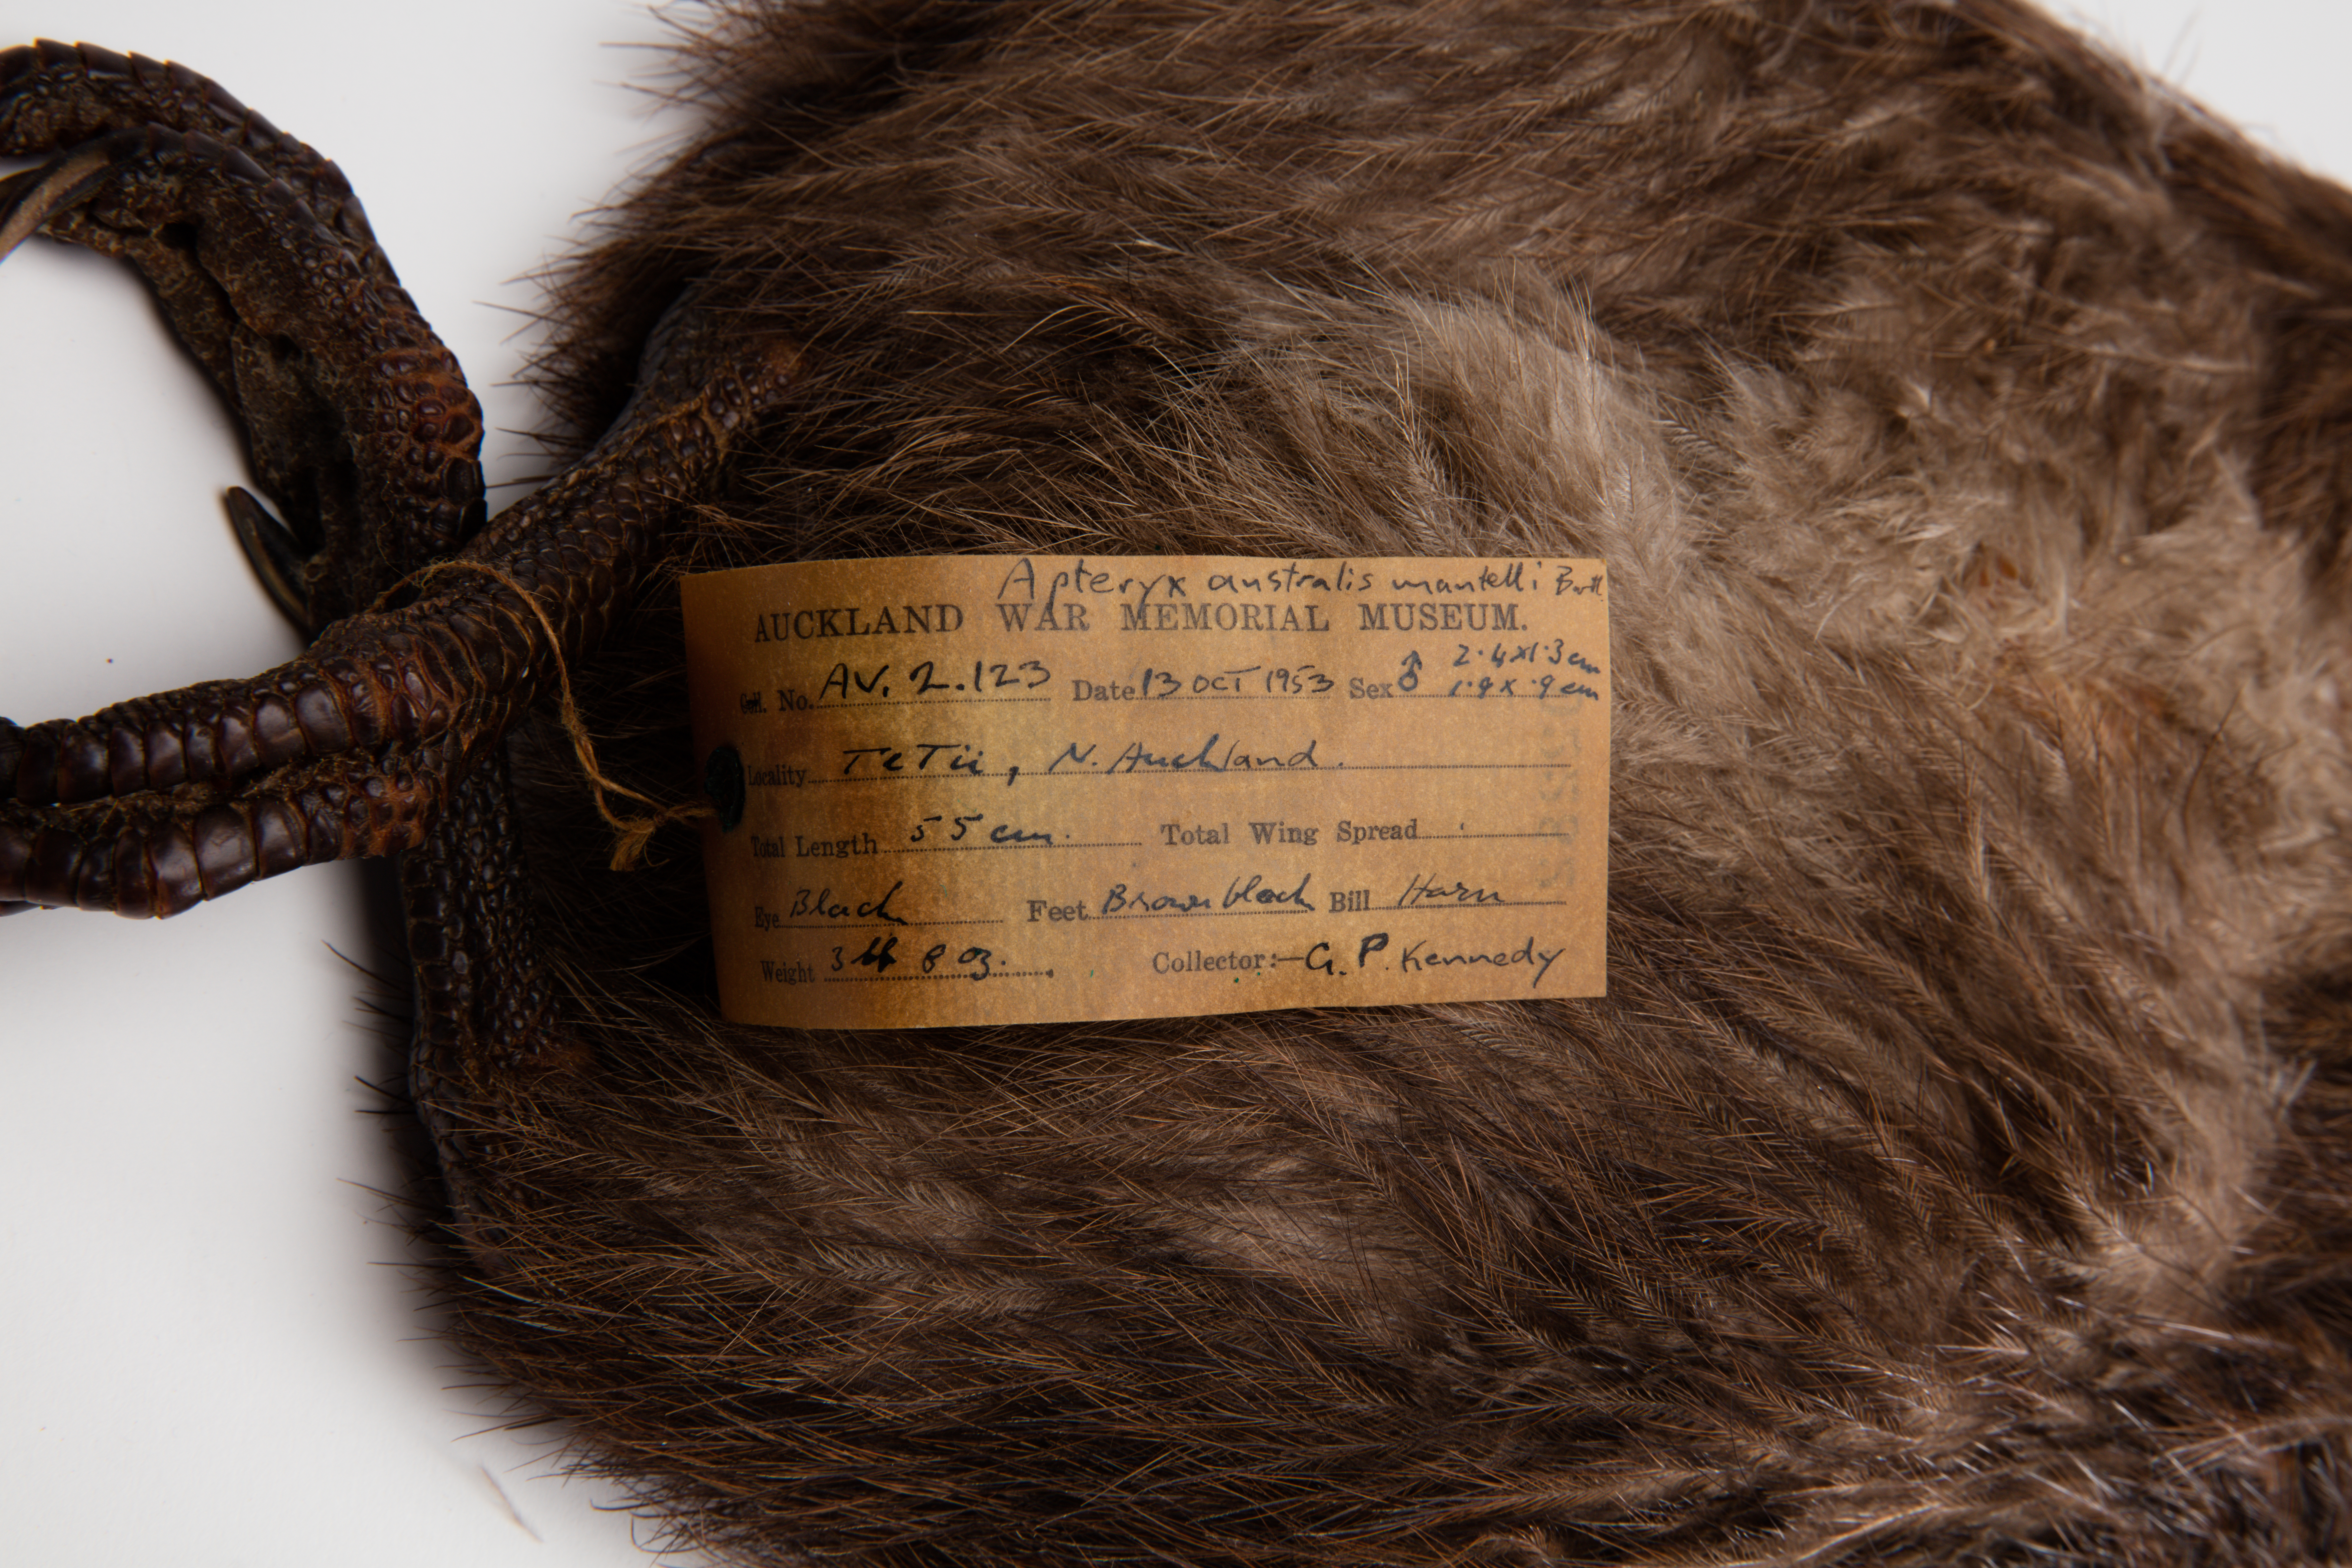 Apteryx australis mantelli Bartl.
AUCKLAND WAR MEMORIAL MUSEUM.
2.4x1.3 cm
Coll. No. AV. 2.123 Date 13 OCT 1953 Sex ♂ 1.9 x .9 cm
Locality Te Tii, N. Auckland.
Total Length 55 cm. Total Wing Spread
Eye Black Feet Brown black Bill Horn
Weight 3 lb 8 oz. Collector:— G. P. Kennedy